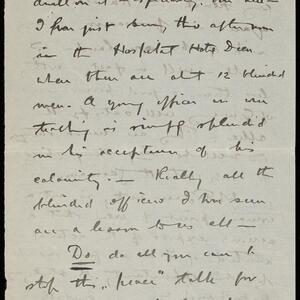 I have just been, this afternoon
in the Hospital Hotel Dieu
when there are abt 12 blinded
men. A young officer in our
teaching is simply splendid
in his acceptance of his
calamity. — Really all the
blinded officers I have seen
are a lesson to us all —
Do do all you can to
stop this "peace" talk for